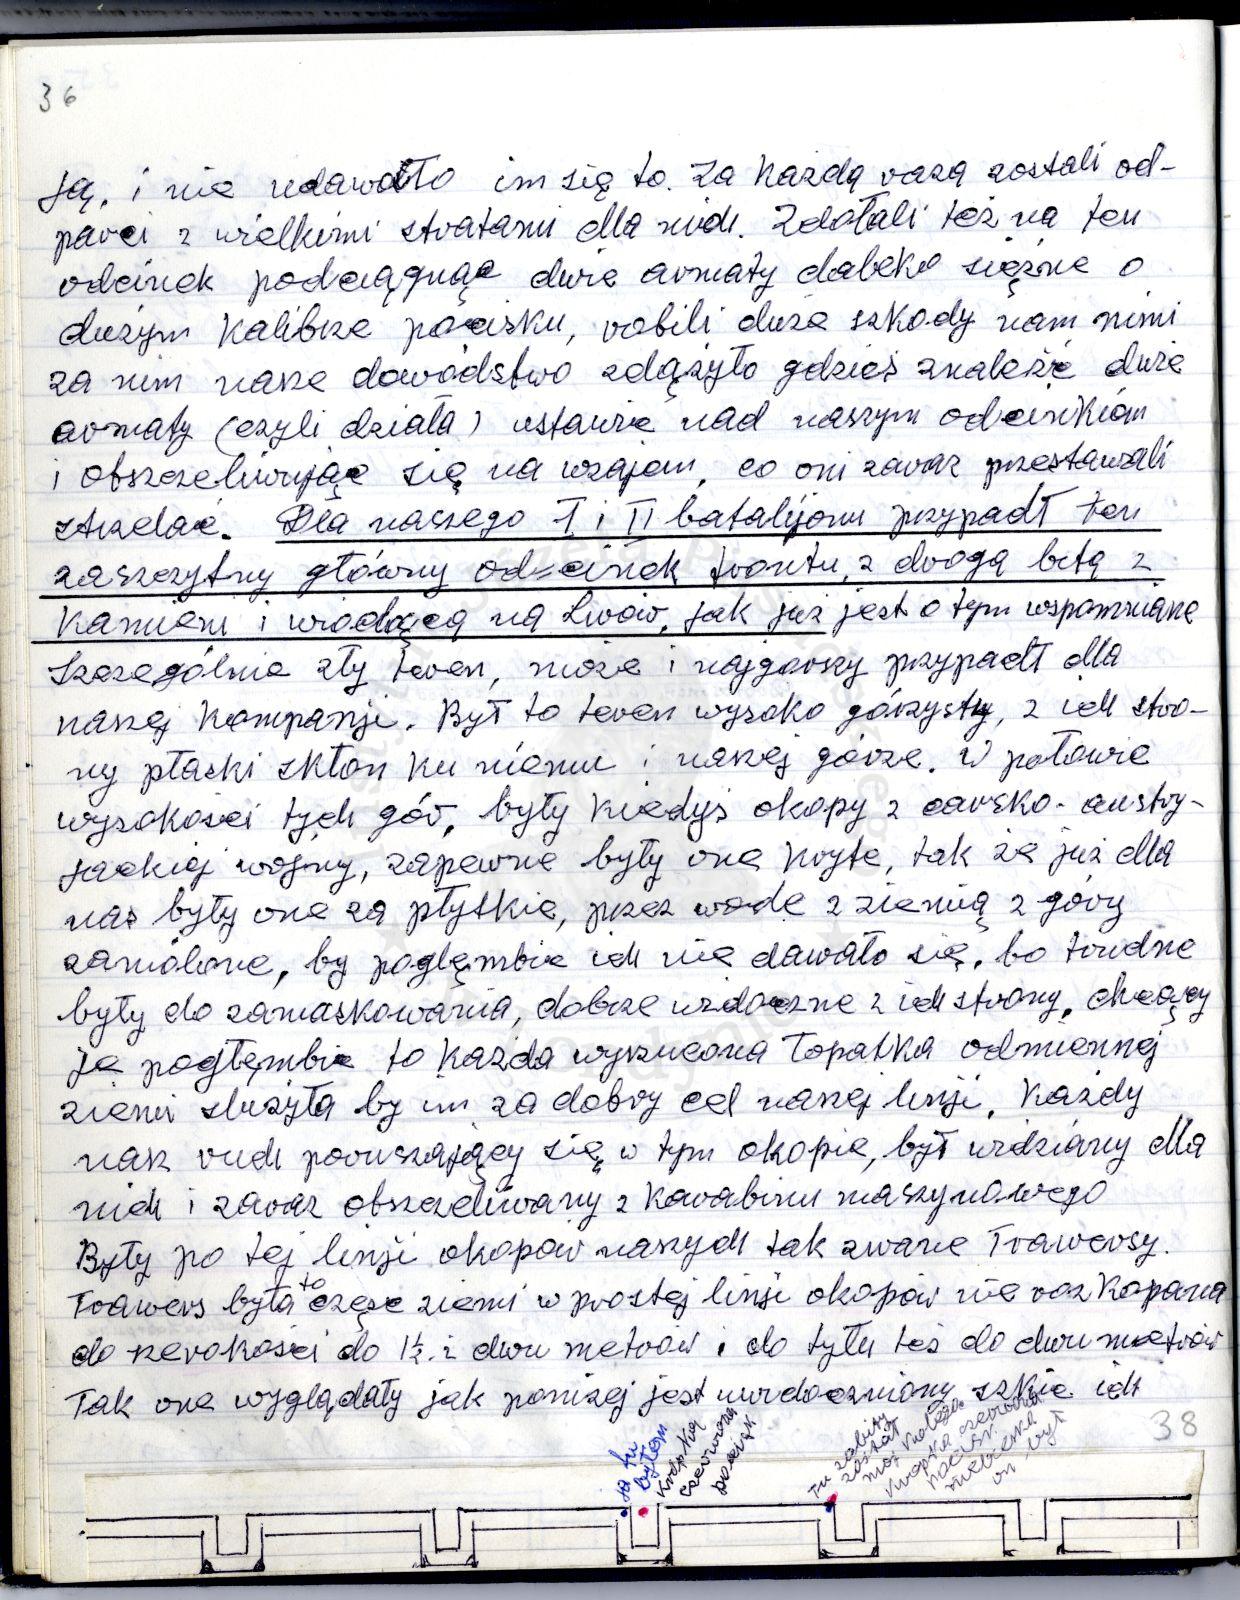 36
ją, i nie udawało im się to. Za każdą razą zostali od-
parci z wielkimi stratami dla nich. Zdołali też na ten
odcinek podciągnąc dwie armaty daleko siężne o
dużym kalibrze pocisku, robili duże szkody nam nimi
za nim nasze dowódstwo zdążyło gdzieś znaleźć dwie
armaty (czyli działa) ustawic nad naszym odcinkiem
i obszczeliwując się na wzajem, co oni zaraz przestawali
strzelać. Dla naszego I i II batalijonu przypadł ten
zaszczytny główny odcinek frontu, z drogą bitą z
kamieni i wiodącą na Lwów, jak już jest o tym wspomniane
Szczególnie zły teren, może i najgorszy przypadł dla
naszej kompanji. Był to teren wysoko górzysty, z ich stro-
ny płaski skłon ku niemu i naszej górze. W połowie
wysokości tych gór, były kiedyś okopy z carsko-austry-
jackiej wojny, zapewne były one kryte, tak że już dla
nas były one za płytkie, przez wodę z ziemią z góry
zamólone, by pogłęmbic ich nie dawało się, bo trudne
były do zamaskowania, dobrze widoczne z ich strony, chcący
je pogłęmbic to każda wyrzucona łopatka odmiennej
ziemi służyła by im za dobry cel naszej linji. Każdy
nasz ruch poruszający się w tym okopie, był widziany dla
nich i zaraz obszczeliwany z karabinu maszynowego
Były po tej linji okopów naszych tak zwane Trawersy.
Trawers była to częsc ziemi w prostej linji okopów nie raz kopana
do szerokości do 1½ i dwu metrów i do tyłu też do dwu metrów
Tak one wyglądały jak poniżej jest uwidoczniony szkic ich
38
ja tu
byłem
kropka
czerwona
pocisk
Tu zabity
został
mój kolega
kropka czerwona
pocisk
niebieska
on był